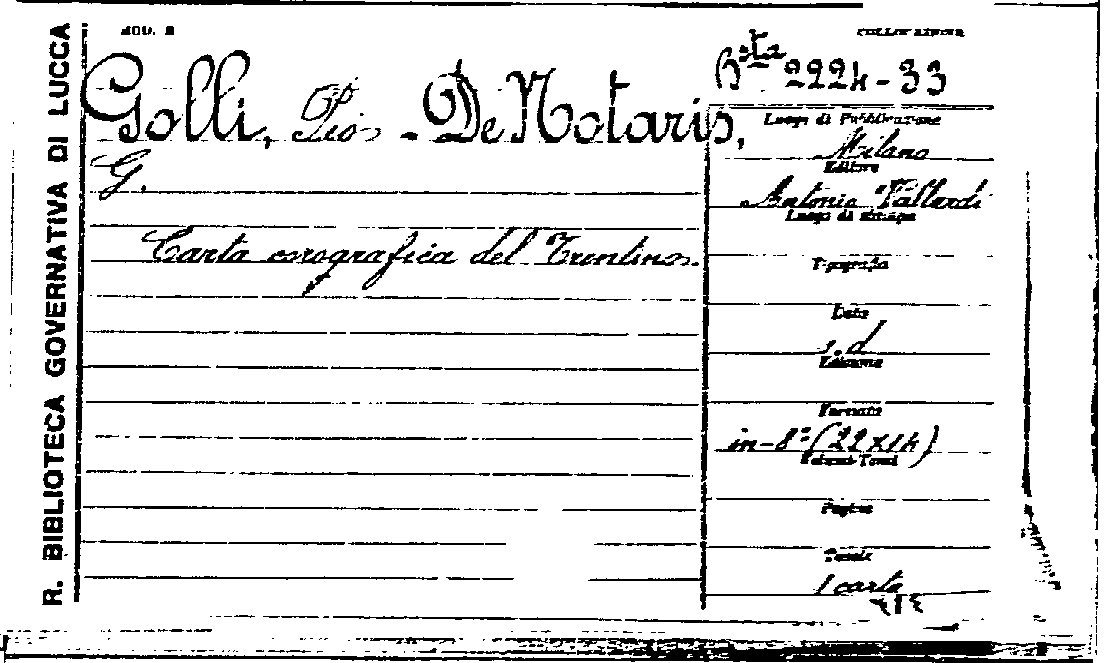 R. BIBLIOTECA GOVERNATIVA DI LUCCA
MOD. 2
COLLOCAZIONE
Bsta 2224-33
Golli, Pio - De Notaris,
G.
Carta orografica del Trentino.
Luogo di Pubblicazione
Milano
Editore
Antonio Vallardi
Luogo di stampa
Tipografia
Data
s.d
Edizione
Formato
in-8° (22x14)
Volumi-Tomi
Pagine
Tavole
1 carta